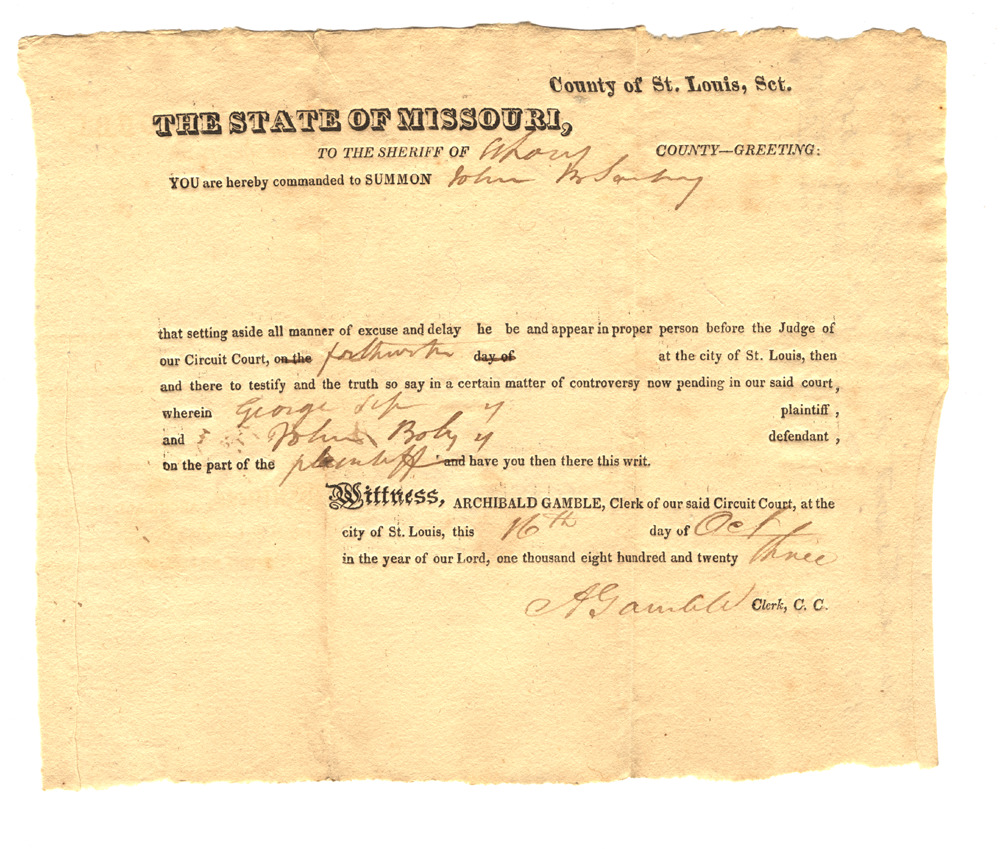 County of St. Louis, Sct.
THE STATE OF MISSOURI,
TO THE SHERIFF OF COUNTY—GREETING:
YOU are hereby commanded to SUMMON John
that setting aside all manner of excuse and delay he be and appear in proper person before the Judge of
our Circuit Court, on the forthwith day of at the city of St. Louis, then
and there to testify and the truth so say in a certain matter of controversy now pending in our said court,
wherein George plaintiff,
and John defendant,
on the part of the plaintiff and have you then there this writ.
Wittness, ARCHIBALD GAMBLE, Clerk of our said Circuit Court, at the
city of St. Louis, this 16th day of Oct
in the year of our Lord, one thousand eight hundred and twenty three
A Gamble Clerk, C. C.